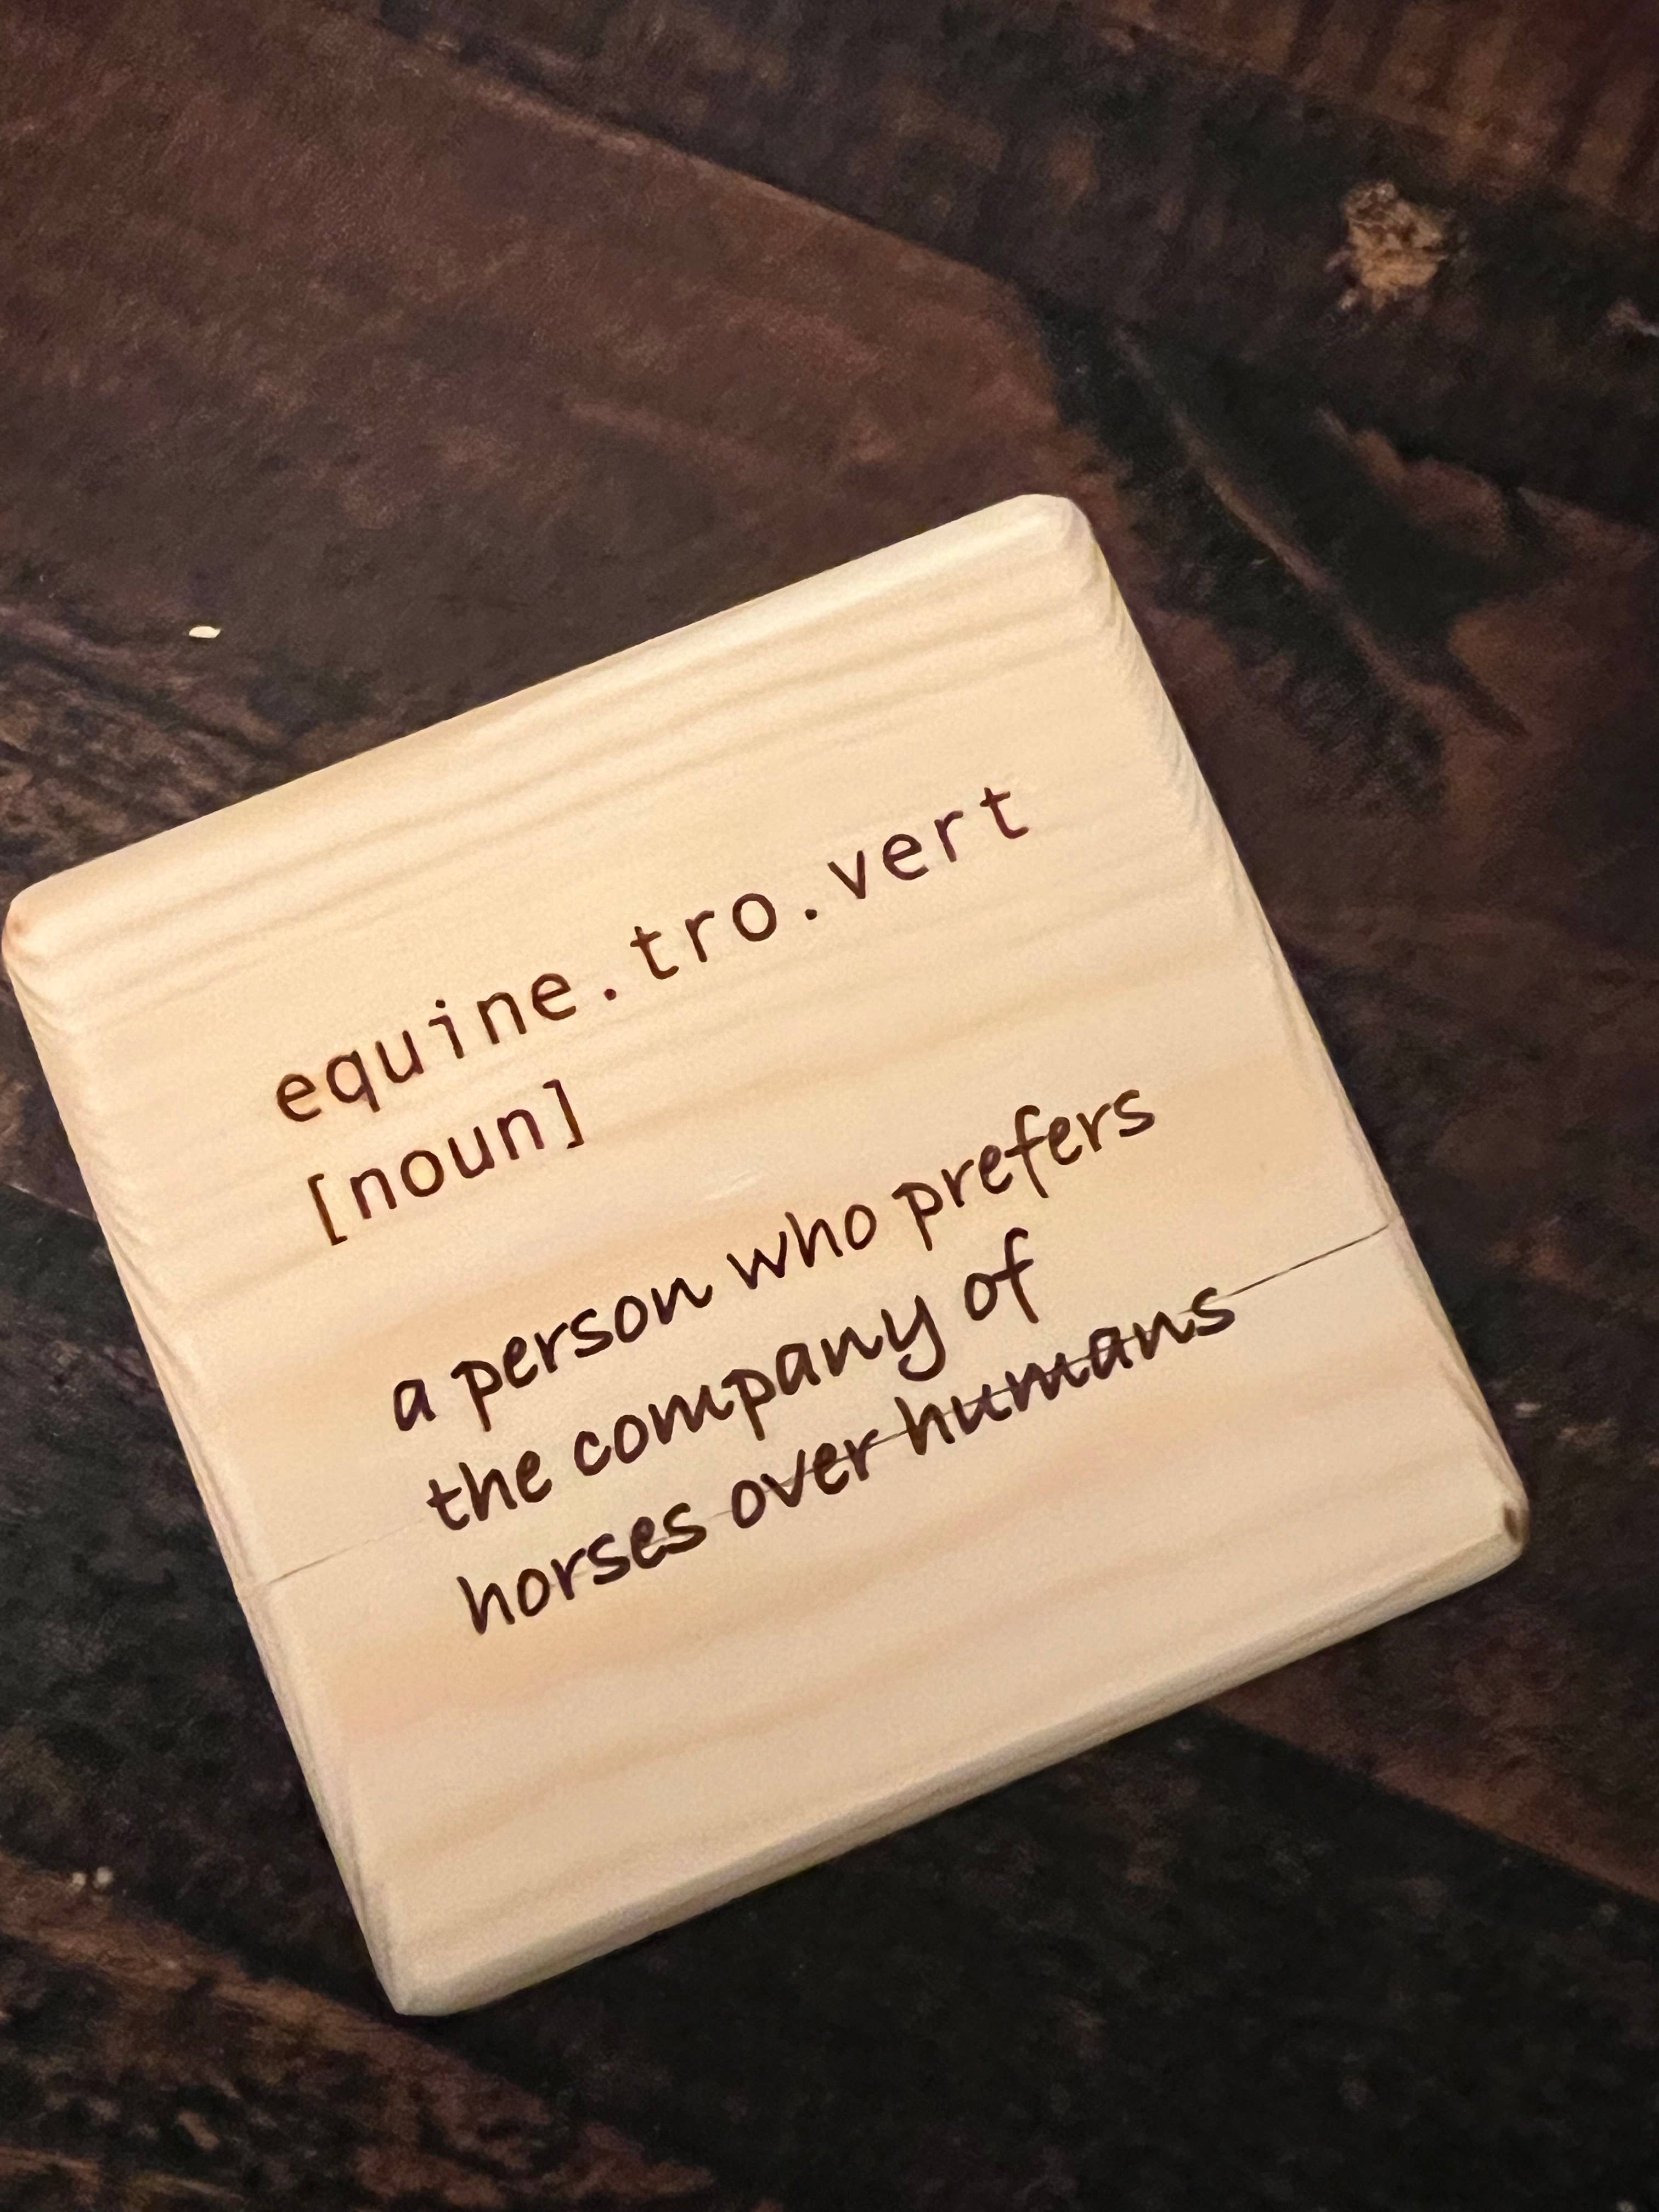 equine.tro.vert
[noun]
a person who prefers
the company of
horses over humans